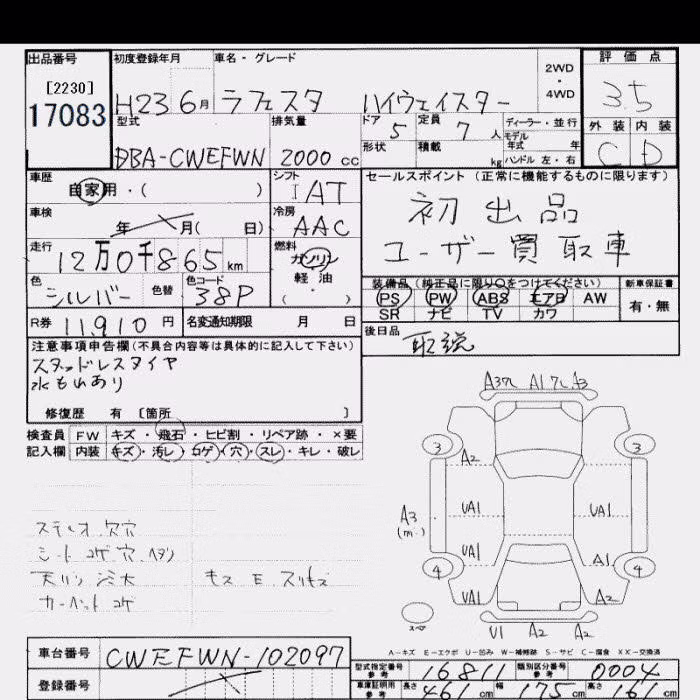 出品番号
[2230]
17083
初度登録年月 車名・グレード
H23 6月 ラフェスタ ハイウェイスター
2WD
・
4WD
評価点
3.5
外装 内装
C D
型式 排気量
DBA-CWEFWN 2000 cc
ドア 5 定員 7 人
形状 積載 kg
ディーラー・並行
モデル年式 年
ハンドル 左・右
車歴
自家用・( )
シフト
IAT
車検
年 月( 日)
冷房
AAC
走行
12万0千865 km
燃料
ガソリン
軽油
( ・ )
色
シルバー 色替
色コード
38P
R券 11910 円 名変通知期限 月 日
セールスポイント (正常に機能するものに限ります)
初出品
ユーザー買取車
装備品(純正品に限り○をつけてください)
PS PW ABS エアB AW
SR ナビ TV カワ
新車保証書
有・無
後日品
取説
注意事項申告欄(不具合内容等は具体的に記入して下さい)
スタッドレスタイヤ
水もれあり
修復歴 有 [箇所 ]
検査員 FW キズ・飛石・ヒビ割・リペア跡・×要
記入欄 内装 キズ・汚レ・コゲ・穴・スレ・キレ・破レ
ステレオ欠穴
シートコゲ穴
カーペットコゲ
A1 A3
3 3
A2
UA1 UA1
A3
(m.)
UA1 A1
4 4
UA1 A2
スペア
U1 A2 A2
A-キズ E-エクボ U-凹み W-補修跡 S-サビ C-腐食 XX-交換済
車台番号 CWEFWN-102097
登録番号
型式指定番号 参考 16811 類別区分番号 参考 0004
車庫証明用 参考 長さ 461 cm 幅 175 cm 高さ 161 cm